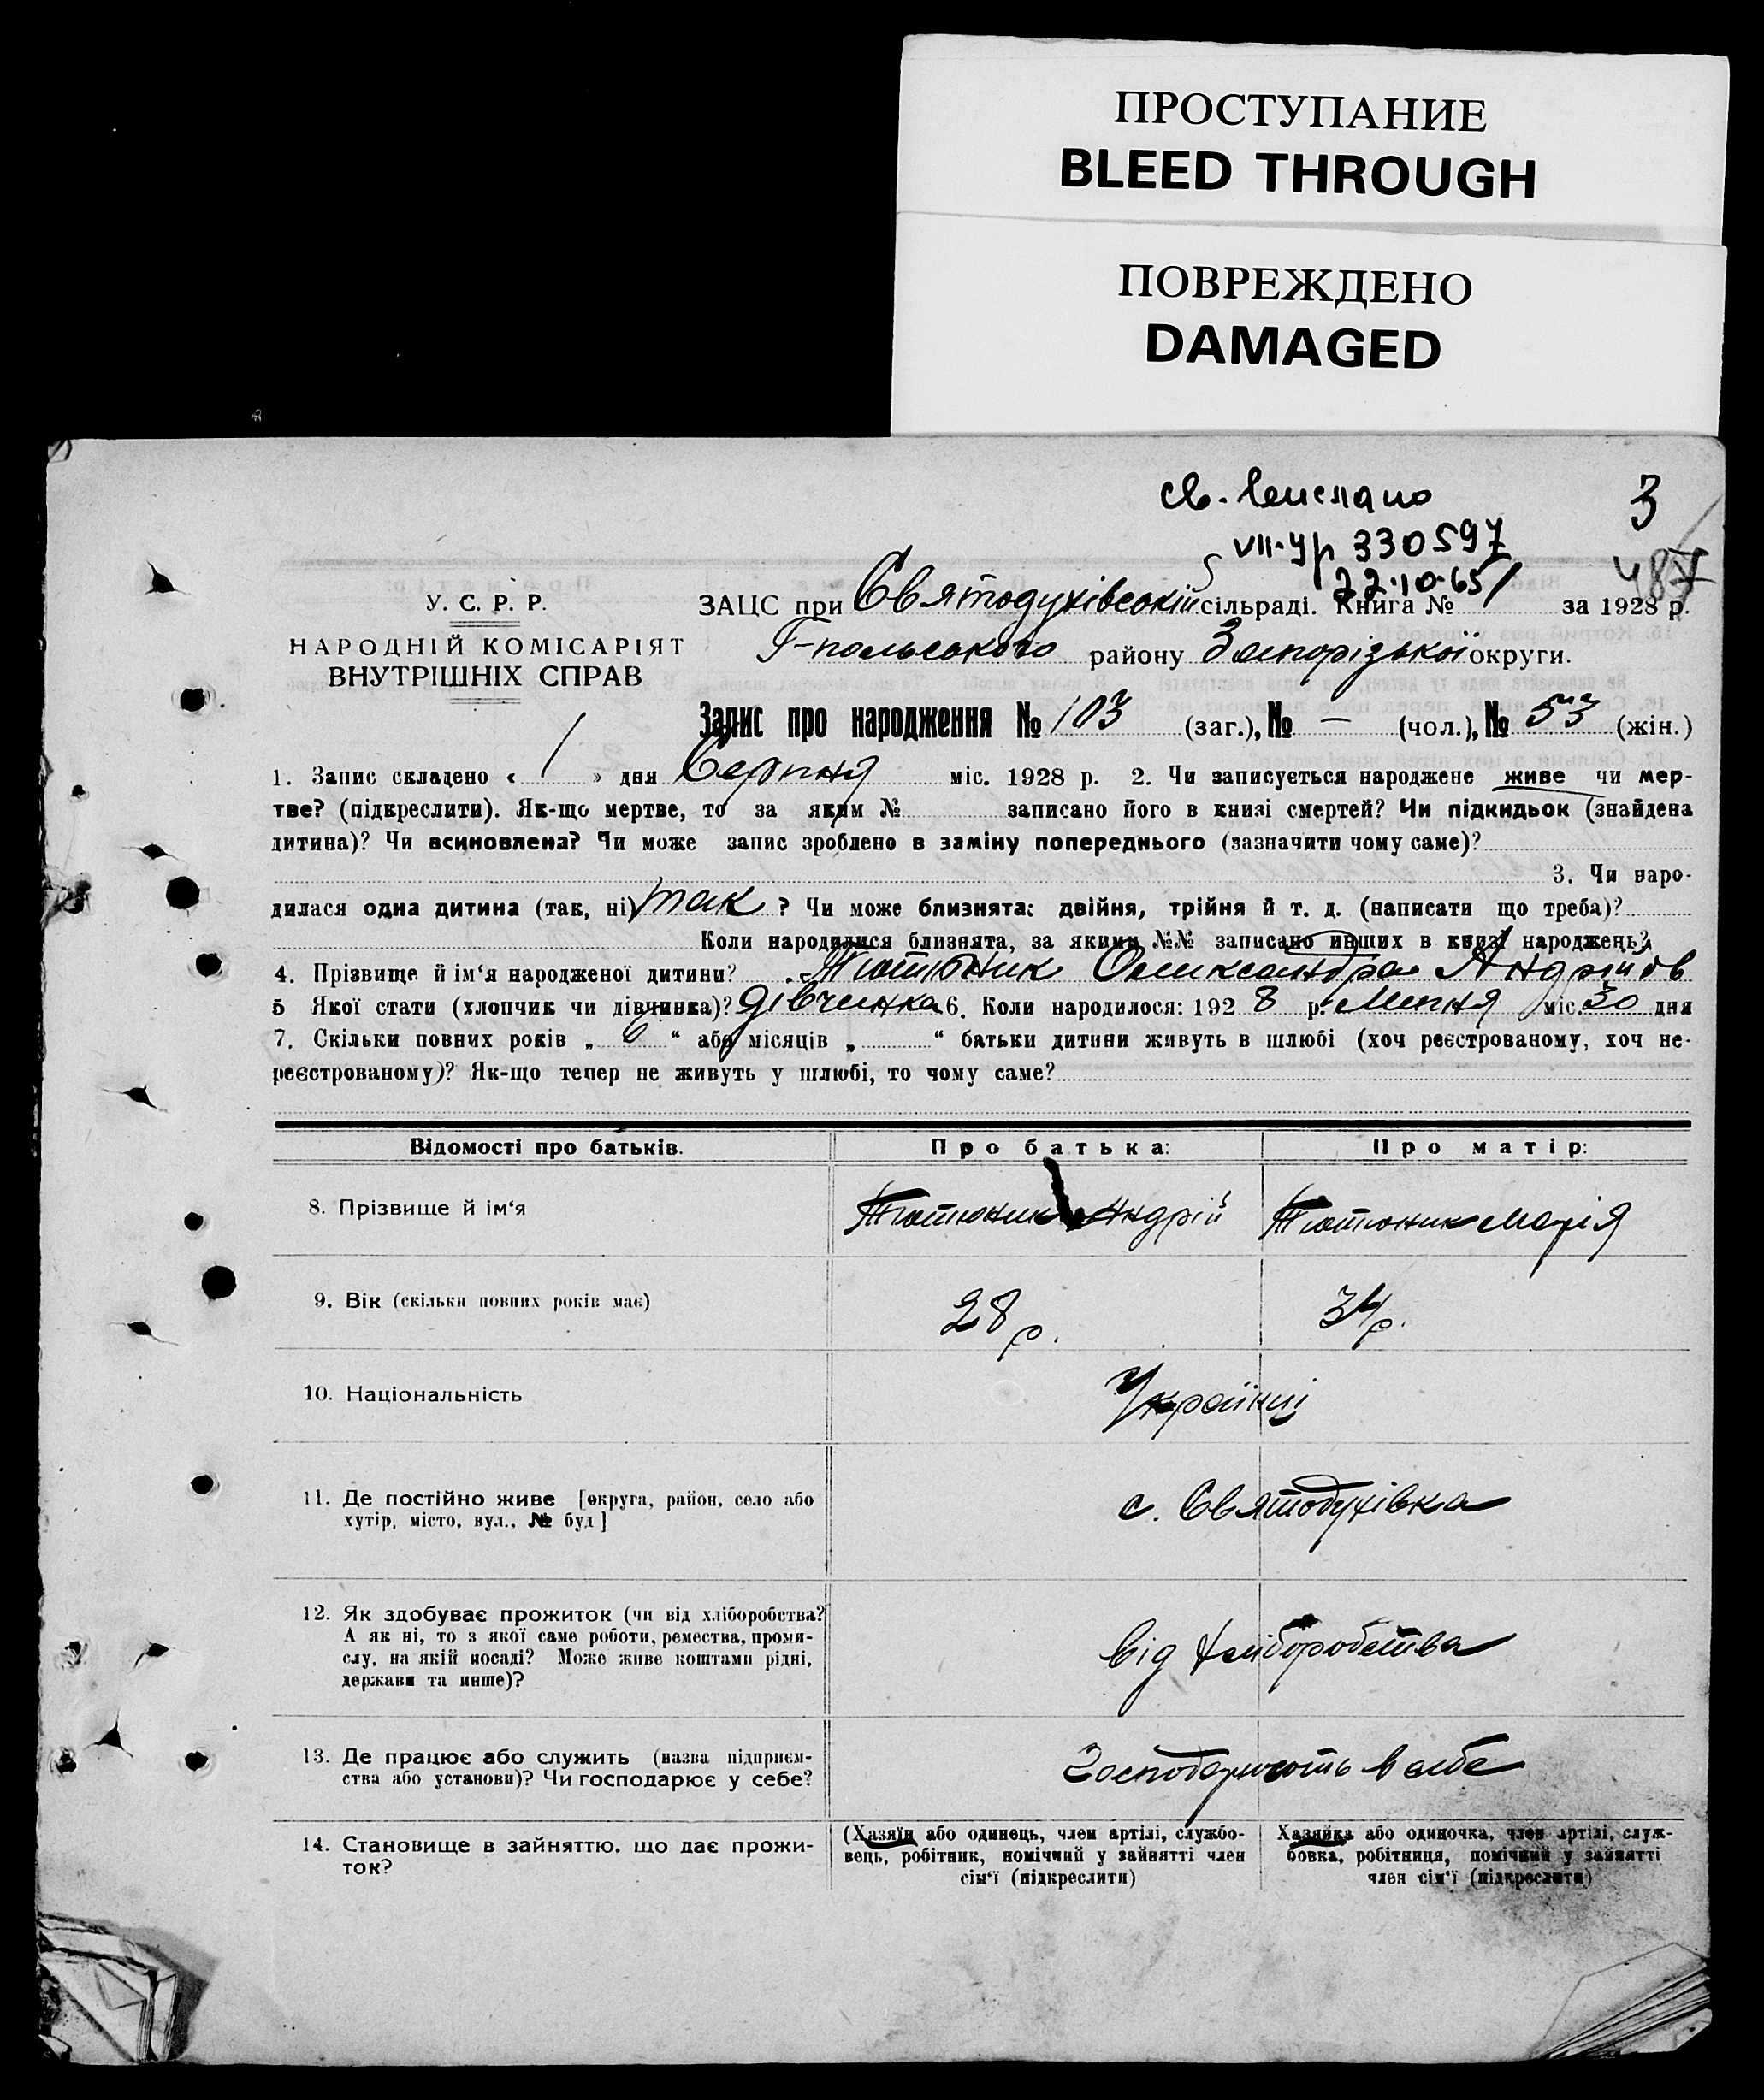 ПРОСТУПАНИЕ
BLEED THROUGH
ПОВРЕЖДЕНО
DAMAGED
св. вислано 3
VII-УР 330597
22.10.65 487
У. С. Р. Р.
НАРОДНІЙ КОМІСАРІЯТ
ВНУТРІШНІХ СПРАВ
ЗАЦС при Святодухівській сільраді. Книга № 1 за 1928 р.
Г-польського району Запорізької округи.
Запис про народження № 103 (заг.), № — (чол.), № 53 (жін.)
1. Запис складено « 1 » дня Серпня міс. 1928 р. 2. Чи записується народжене живе чи мер-
тве? (підкреслити). Як-що мертве, то за яким № записано його в книзі смертей? Чи підкидьок (знайдена
дитина)? Чи всиновлена? Чи може запис зроблено в заміну попереднього (зазначити чому саме)?
3. Чи наро-
дилася одна дитина (так, ні) так ? Чи може близнята: двійня, трійня й т. д. (написати що треба)?
Коли народилися близнята, за якими №№ записано инших в книзі народжень?
4. Прізвище й ім'я народженої дитини? Тютюник Олександра Андріїв
5 Якої стати (хлопчик чи дівчинка)? дівчинка 6. Коли народилося: 192 8 р. Липня міс. 30 дня
7. Скільки повних років „ 6 “ або місяців „ “ батьки дитини живуть в шлюбі (хоч реєстрованому, хоч не-
реєстрованому)? Як-що тепер не живуть у шлюбі, то чому саме?
Відомості про батьків. Про батька: Про матір:
8. Прізвище й ім'я Тютюник Андрій Тютюник Марія
9. Вік (скільки повних років має) 28 р. 34 р.
10. Національність Українці
11. Де постійно живе [округа, район, село або
хутір, місто, вул., № буд] с. Святодухівка
12. Як здобуває прожиток (чи від хліборобства?
А як ні, то з якої саме роботи, ремества, проми-
слу, на якій посаді? Може живе коштами рідні,
держави та инше)? від хліборобства
13. Де працює або служить (назва підприєм-
ства або установи)? Чи господарює у себе? Господарюють в себе
14. Становище в зайняттю, що дає прожи-
ток?
(Хазяїн або одинець, член артілі, службо-
вець, робітник, помічний у зайнятті член
сім'ї (підкреслити)
Хазяйка або одиночка, член артілі, служ-
бовка, робітниця, помічний у зайнятті
член сім'ї (підкреслити)